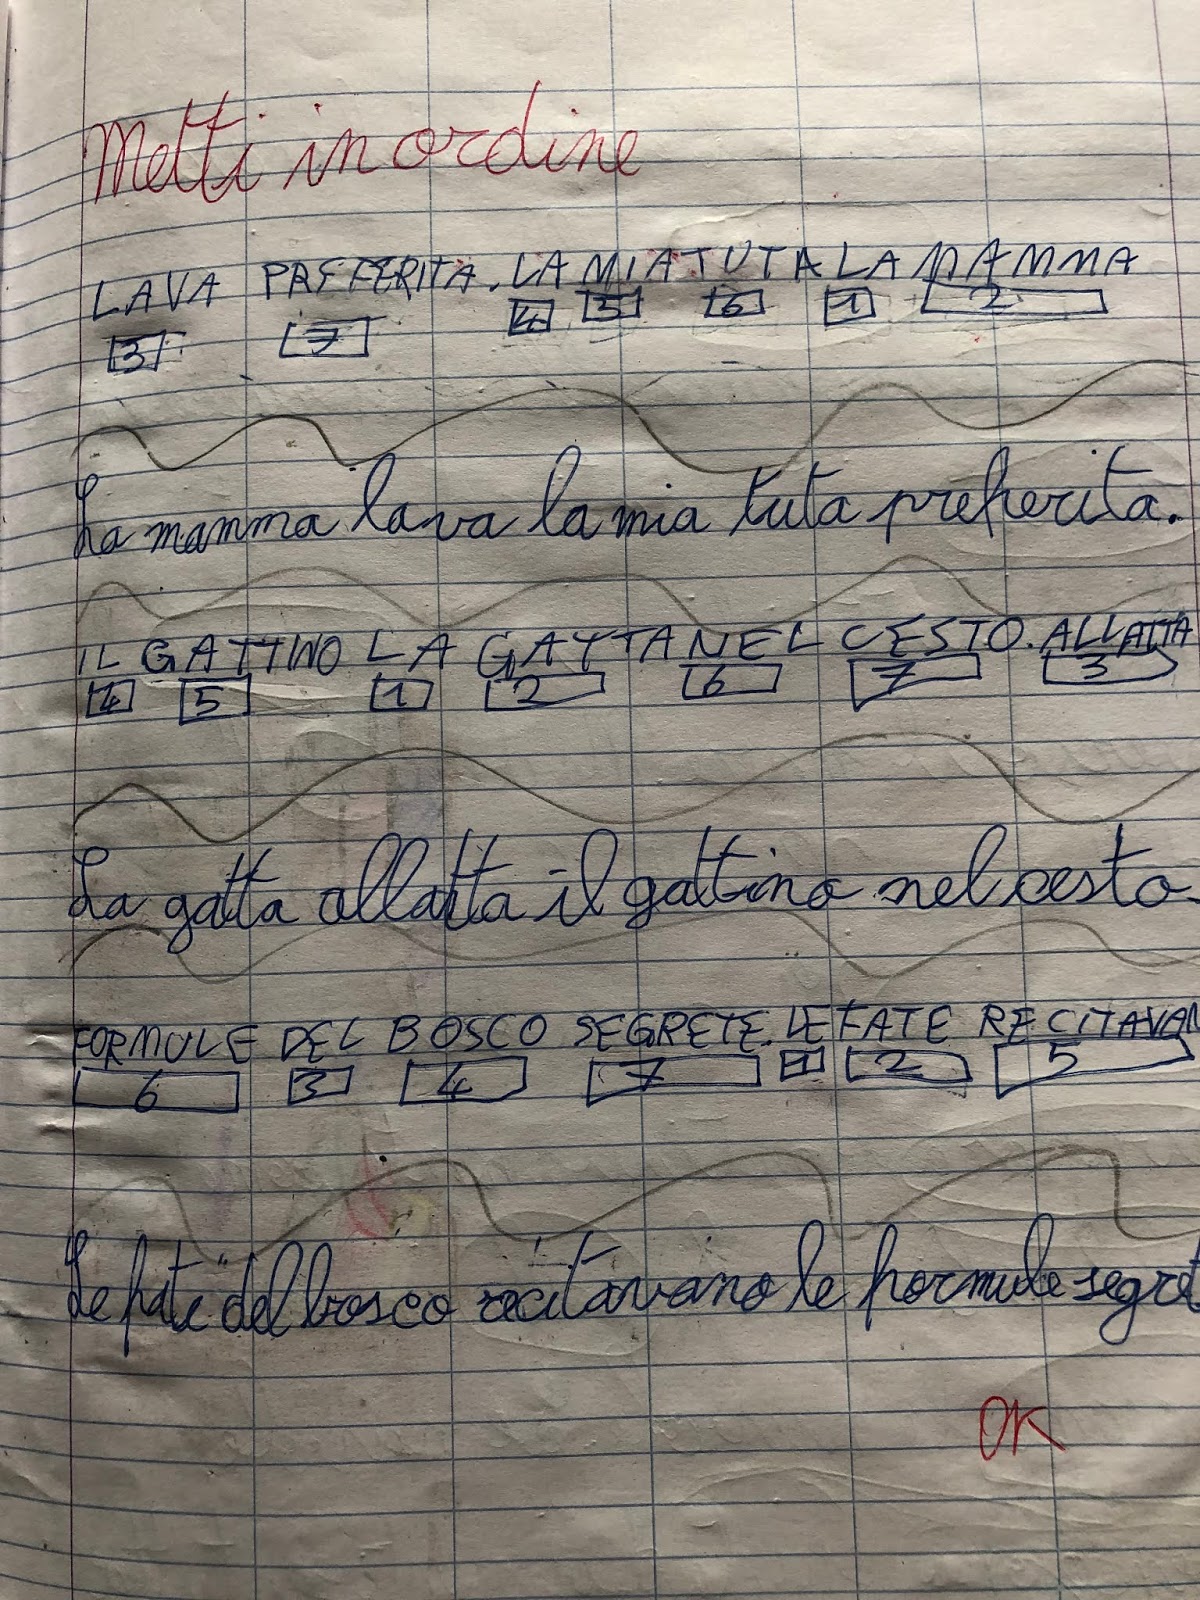 Metti in ordine
LAVA PREFERITA. LA MIA TUTA LA MAMMA
3 7 4 5 6 1 2
La mamma lava la mia tuta preferita.
IL GATTINO LA GATTA NEL CESTO. ALLATTA
4 5 1 2 6 7 3
La gatta allatta il gattino nel cesto.
FORMULE DEL BOSCO SEGRETE. LE FATE RECITAVAN
6 3 4 7 1 2 5
Le fate del bosco recitavano le formule segret
OK